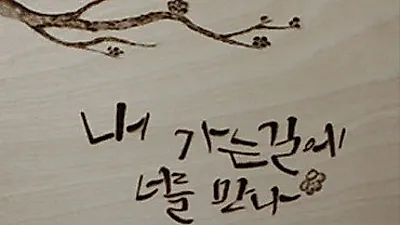 내 가는길에
너를 만나